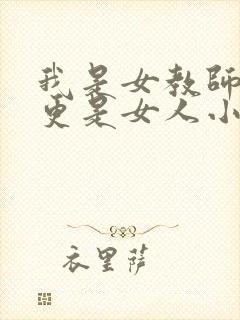 我是女教師
更是女人小
衣里薩